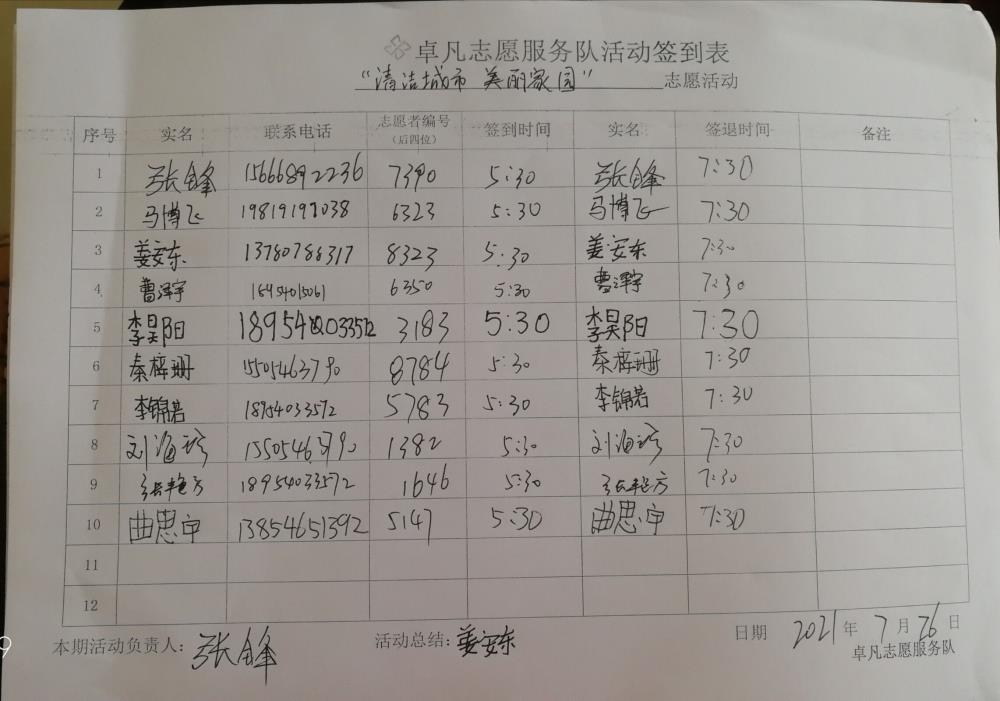 卓凡志愿服务队活动签到表
“清洁城市 美丽家园” 志愿活动
序号 实名 联系电话 志愿者编号(后四位) 签到时间 实名 签退时间 备注
1 张锋 15666892236 7390 5:30 张锋 7:30
2 马博飞 19819197038 6323 5:30 马博飞 7:30
3 姜安东 13780788317 8323 5:30 姜安东 7:30
4 曹泽宇 18454015061 6350 5:30 曹泽宇 7:30
5 李昊阳 18954033572 3183 5:30 李昊阳 7:30
6 秦梓珊 15505463790 8784 5:30 秦梓珊 7:30
7 李锦若 18954033572 5783 5:30 李锦若 7:30
8 刘海 15505463790 1382 5:30 刘海 7:30
9 18954033572 1646 5:30 7:30
10 曲思宇 13854651392 5147 5:30 曲思宇 7:30
11
12
本期活动负责人: 张锋 活动总结: 姜安东 日期 2021 年 7 月 26 日
卓凡志愿服务队